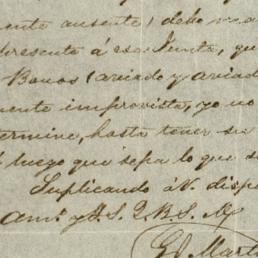 mente ausente) debo
presente á esa Junta, que
Bancos (aviado y aviad
mente imprevista, yo no
termine, hasta tener su
luego que sepa lo que s
Suplicando á V. dispe
Am. y A. S. Q. B. S. M.
G. Mart